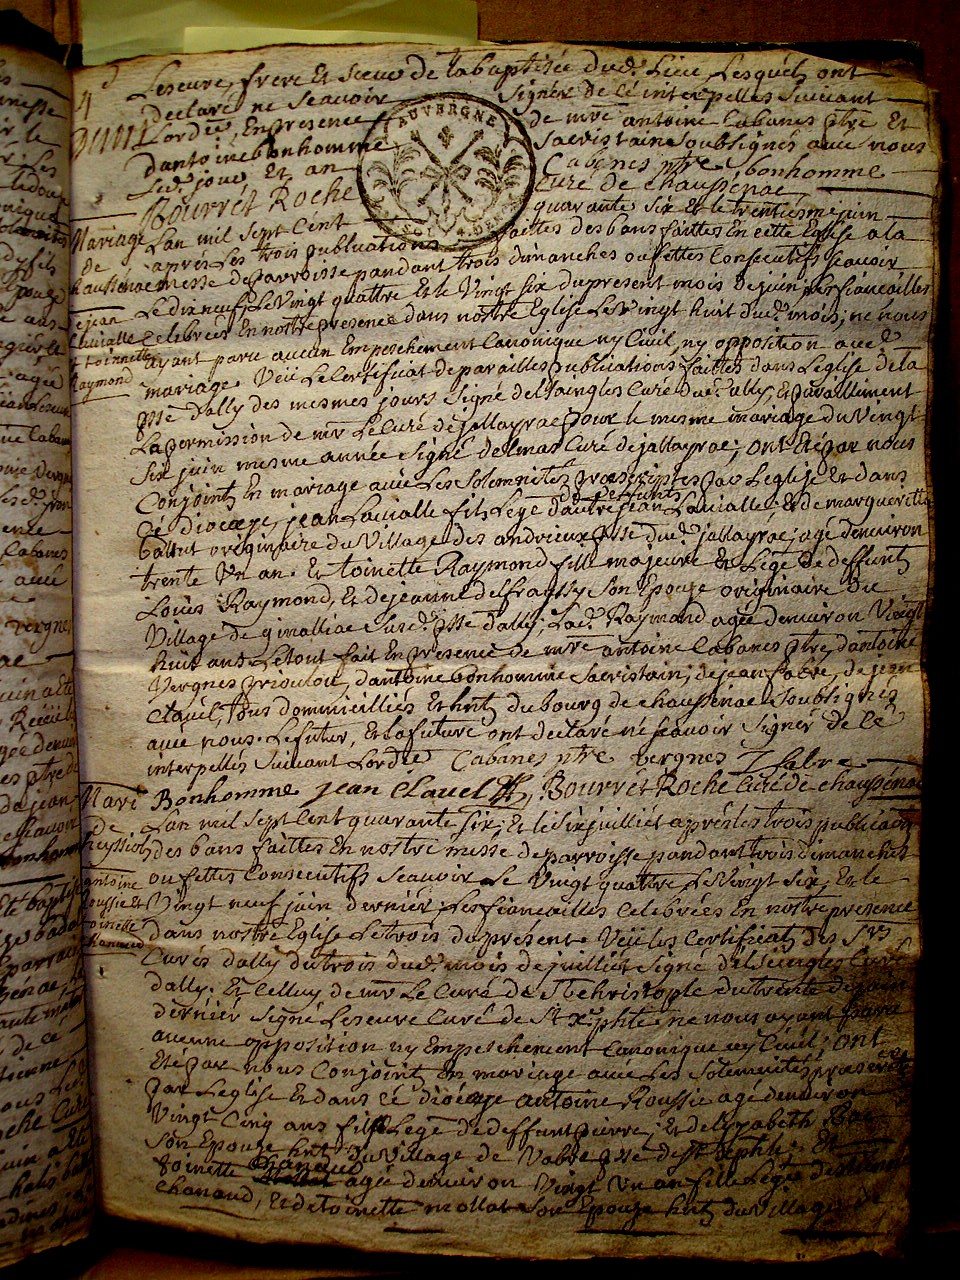 Leseure, frere Et Sœur de la baptisée dud. Lieu, Lesquels ont
declaré ne Scavoir Signer de Cé interpellés Suivant
Lordce, En presence de mre antoine Cabanes ptre Et
dantoine bonhomme Sacristain Soubsignés avec nous
Led. jour Et an Cabanes ptre bonhomme
Bourret Roche Curé de chaussenac
AUVERGNE
Mariage Lan mil Sept Cent quarante Six Et le trentiesme juin
de apres Les trois publications faittes des bans faittes En cette Eglise a la
chaussenac messe de parroisse pandant trois dimanches ou fettes Consecutifs Scavoir
Le dix neuf, Le Vingt quattre Et le Vingt Six du present mois de juin, les fiancailles
de jean Celebrees En nostre presence dans nostre Eglise Le Vingt huit dud. mois; ne nous
Lavialle ayant paru aucun Empeschement Canonique ny Civil, ny opposition aud.
Et toinette mariage Veü Le Certificat de pareilles publications faittes dans Leglise de la
Raymond psse dally des mesmes jours Signé delsaingles Curé dud. ally, Et pareillement
La permission de mr Le Curé de jallayrac pour le mesme mariage du Vingt
Six juin mesme année Signé delmas Curé de jallayrac; ont Eté par nous
Conjoints En mariage avec Les Solemnités prescriptes par Leglise Et dans
Cé dioceze, jean Lavialle fils Lege dautre jean Lavialle, Et de marguerette
de deffunts
battut originaire du Village des andrieux psse dud. jallayrac; agé denviron
trente Un an. Et toinette Raymond fille majeure Et Lege de deffunt
Louis Raymond, Et de jeanne delfraissy Son Epouze originaire du
Village de gimalliac Susd. psse dally; Lad. Raymond agée denviron Vingt
huit ans Le tout fait En presence de mre antoine Cabanes ptre, dantoine
Vergnes, dantoine bonhomme Sacristain, de jean fabre, de jean
Clavel, tous dommicilliés Et hnts du bourg de chaussenac Soubsignés
avec nous. Le futur, Et la future ont declaré né Scavoir Signer de Cé
interpellés Suivant Lordce Cabanes ptre vergnes J fabre
Bonhomme jean Clavel Bourret Roche Curé de chaussenac
Mari Lan mil Sept Cent quarante Six, Et le Six juilliet apres les trois publicaons
de des bans faittes En nostre messe de parroisse pandant trois dimanches
ou fettes Consecutifs Scavoir Le Vingt quattre, Le Vingt Six, Et le
antoine Vingt neuf juin dernier; Les fiancailles Celebrées En nostre presence
Roussie Et dans nostre Eglise Le trois du present Veü les Certificats des Srs
toinette Curés dally du trois dud. mois de juilliet Signé delsaingles Curé
Chanaud dally. Et Celluy de mr Le Curé de St Christople du trente de juin
dernier Signé Leseure Curé de St Xphle; ne nous ayant paru
aucune opposition ny Empeschement Canonique ny Civil; ont
Eté par nous Conjoint En mariage avec Les Solemnités prescriptes
par Leglise Et dans Cé diocèze antoine Roussie agé denviron
Vingt Cinq ans fils Lege de deffunt pierre, Et delizabeth
Son Epouze hnts du Village de Vabre psse de St Xphle; Et
toinette Chanaud agée denviron Vingt Un an fille Lege
Chanaud, Et de toinette mollat Son Epouze hnts du Village de